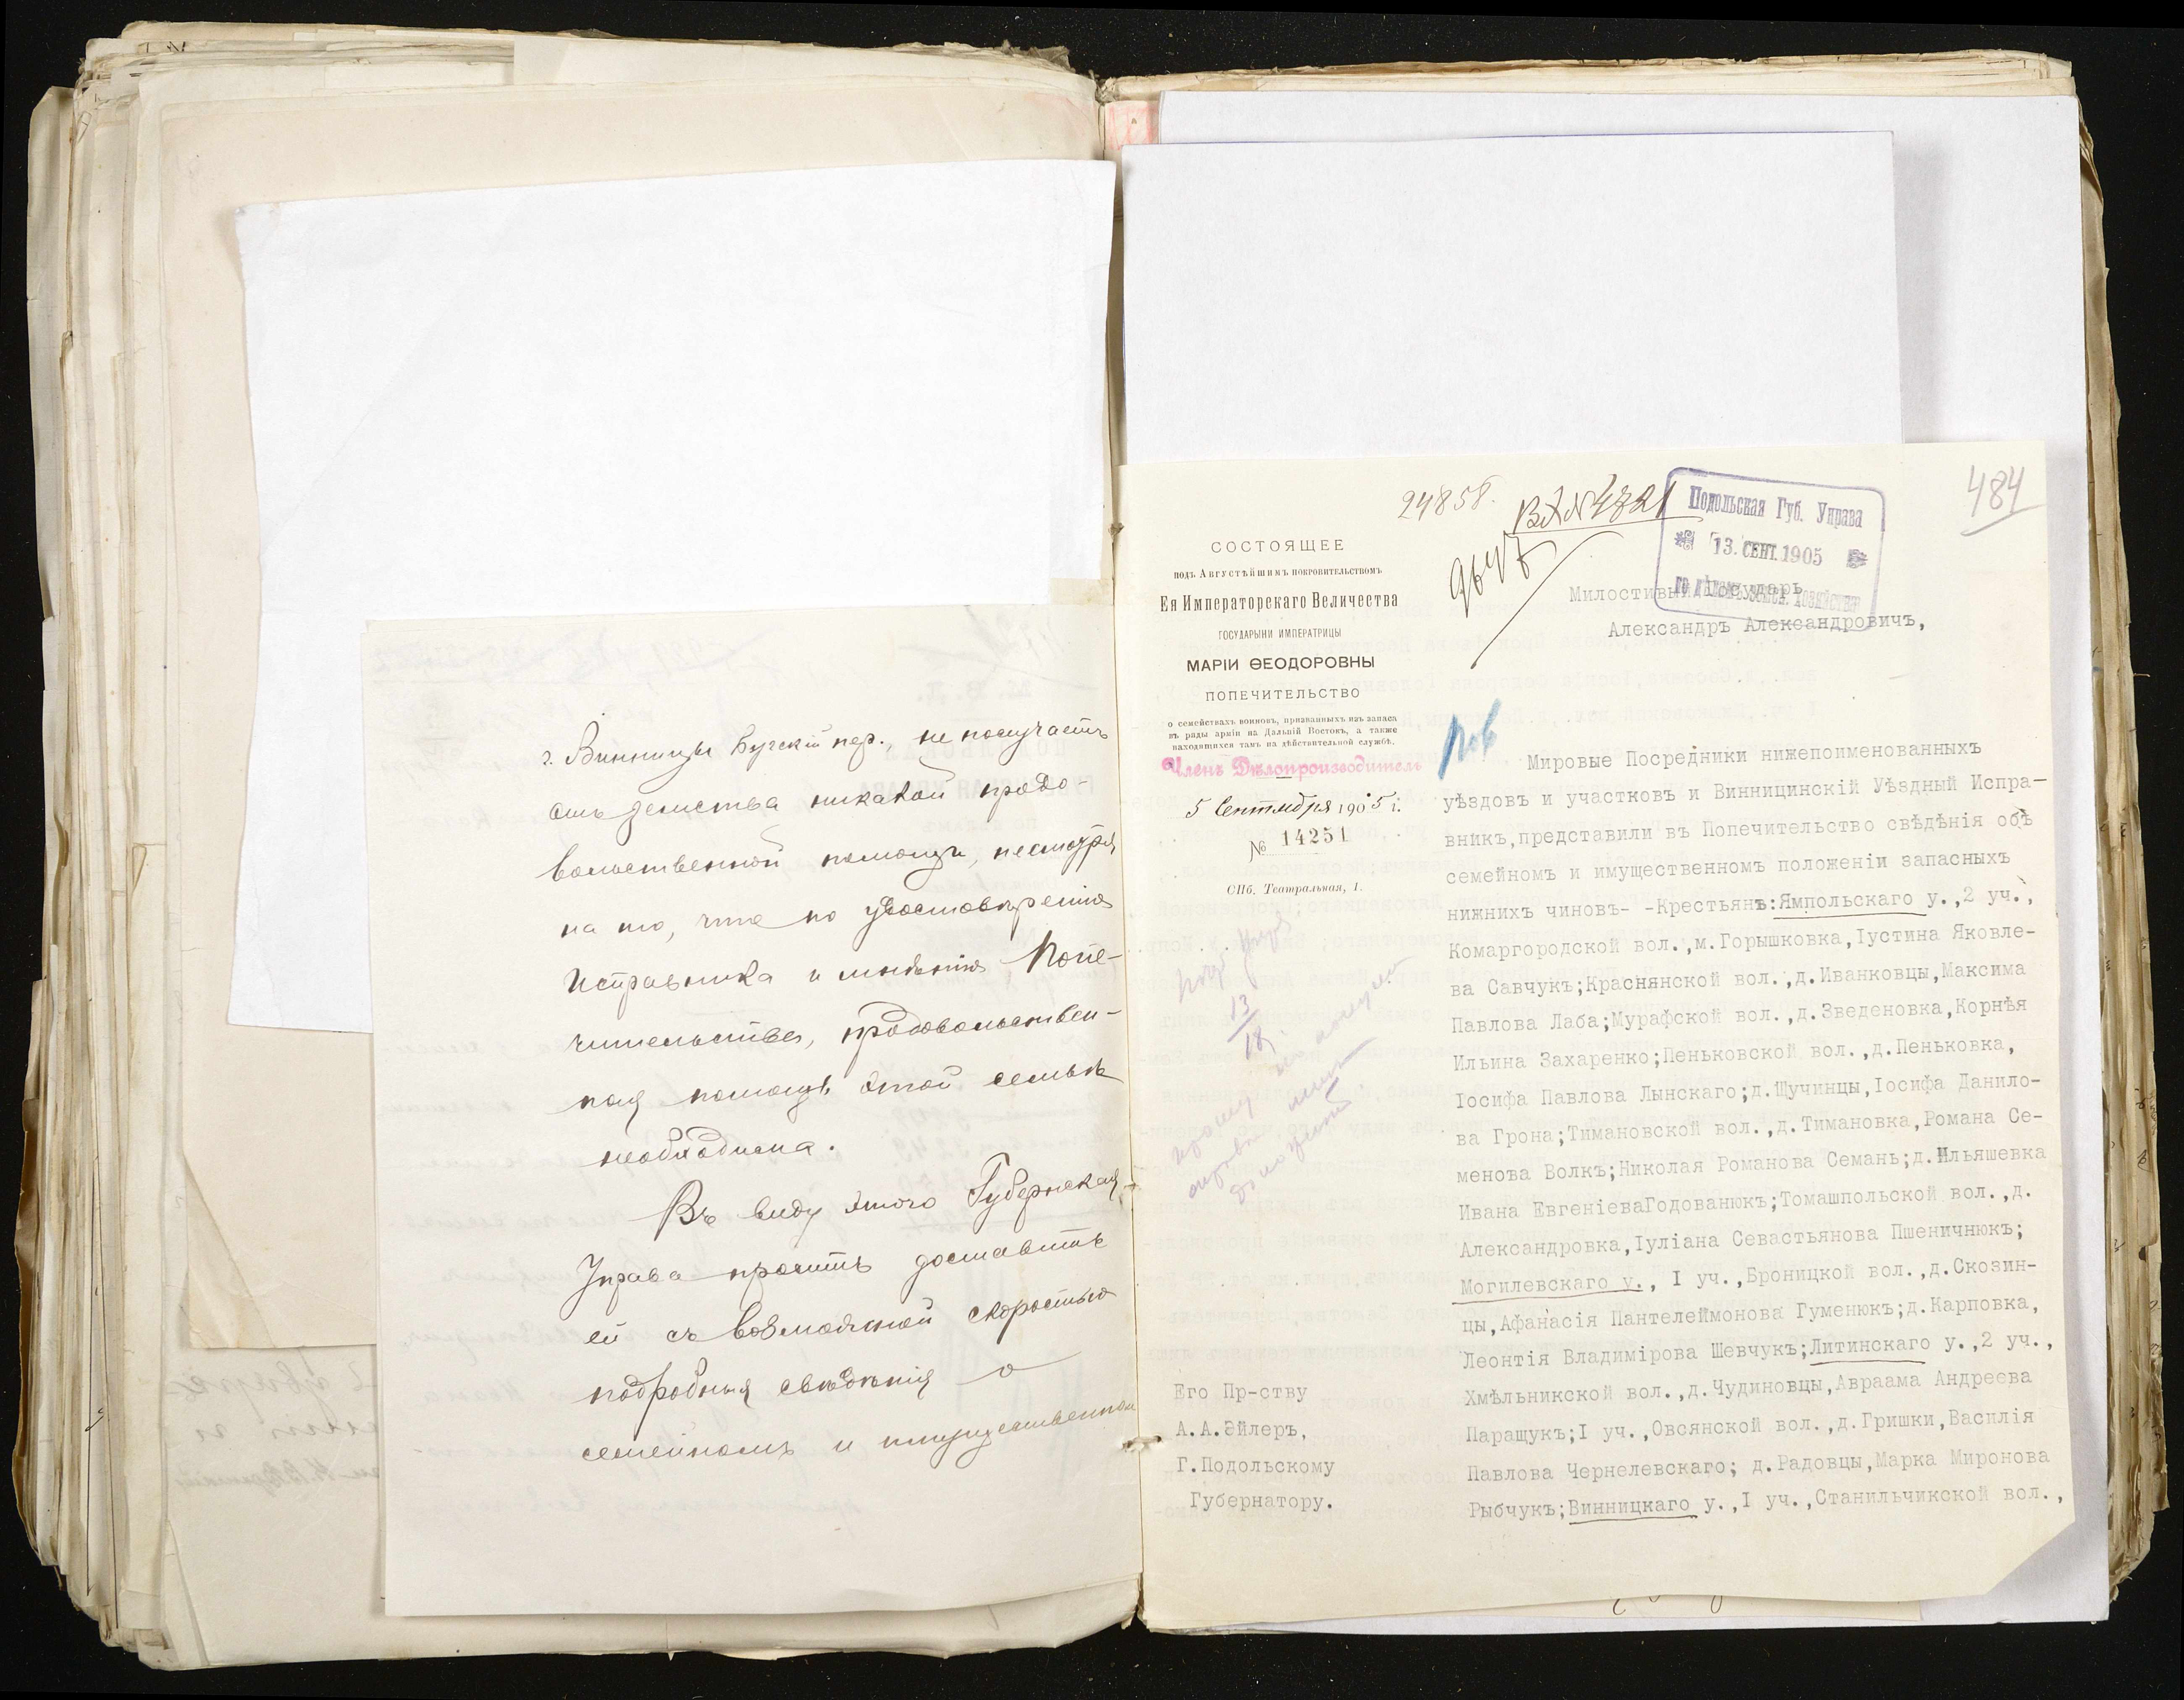 г. Винницы Бугскій пер., не получаетъ
отъ земства никакой продо-
вольственной помощи, несмотря
на то, что по удостовѣренію
Исправника и мнѣнію Попе-
чительства, продовольствен-
ная помощь этой семьѣ
необходима.
Въ виду этого Губернская
Управа проситъ доставить
ей съ возможной скоростью
подробныя свѣдѣнія о
семейномъ и имущественном
484
24858.
Вх № 4721
Подольская Губ. Управа
13. СЕНТ. 1905
СОСТОЯЩЕЕ
подъ Августѣйшимъ покровительствомъ
Ея Императорскаго Величества
ГОСУДАРЫНИ ИМПЕРАТРИЦЫ
МАРІИ ѲЕОДОРОВНЫ
ПОПЕЧИТЕЛЬСТВО
о семействахъ воиновъ, призванныхъ изъ запаса
въ ряды арміи на Дальній Востокъ, а также
находящихся тамъ на дѣйствительной службѣ.
Членъ Дѣлопроизводитель
5 Сентября 1905 г.
№ 14251
СПб. Театральная, 1.
13
18
Его Пр-ству
А.А.Эйлеръ,
Г.Подольскому
Губернатору.
Милостивый Государь
Александръ Александровичъ,
Мировые Посредники нижепоименованныхъ
уѣздовъ и участковъ и Винницинскій Уѣздный Испра-
вникъ,представили въ Попечительство свѣдѣнія объ
семейномъ и имущественномъ положеніи запасныхъ
нижнихъ чиновъ- -Крестьянъ:Ямпольскаго у.,2 уч.,
Комаргородской вол.,м.Горышковка,Іустина Яковле-
ва Савчукъ;Краснянской вол.,д.Иванковцы,Максима
Павлова Лаба;Мурафской вол.,д.Зведеновка,Корнѣя
Ильина Захаренко;Пеньковской вол.,д.Пеньковка,
Іосифа Павлова Лынскаго;д.Щучинцы,Іосифа Данило-
ва Грона;Тимановской вол.,д.Тимановка,Романа Се-
менова Волкъ;Николая Романова Семань;д.Ильяшевка
Ивана ЕвгеніеваГодованюкъ;Томашпольской вол.,д.
Александровка,Іуліана Севастьянова Пшеничнюкъ;
Могилевскаго у., I уч.,Броницкой вол.,д.Скозин-
цы,Афанасія Пантелеймонова Гуменюкъ;д.Карповка,
Леонтія Владимірова Шевчукъ;Литинскаго у.,2 уч.,
Хмѣльникской вол.,д.Чудиновцы,Авраама Андреева
Паращукъ;I уч.,Овсянской вол.,д.Гришки,Василія
Павлова Чернелевскаго; д.Радовцы,Марка Миронова
Рыбчукъ;Винницкаго у.,I уч.,Станильчикской вол.,